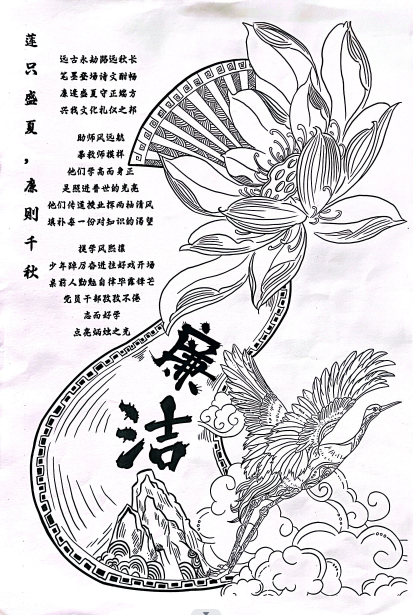 莲只盛夏，廉则千秋
远古永劫路远秋长
笔墨登场诗文酣畅
廉连盛夏守正端方
兴我文化礼仪之邦
助师风远航
慕教师模样
他们学高而身正
是照进普世的光亮
他们传道授业挥两袖清风
填补每一份对知识的渴望
提学风熙攘
少年踔厉奋进社好戏开场
桌前人勤勉自律毕露锋芒
党员干部孜孜不倦
志而好学
点亮炳烛之光
廉洁